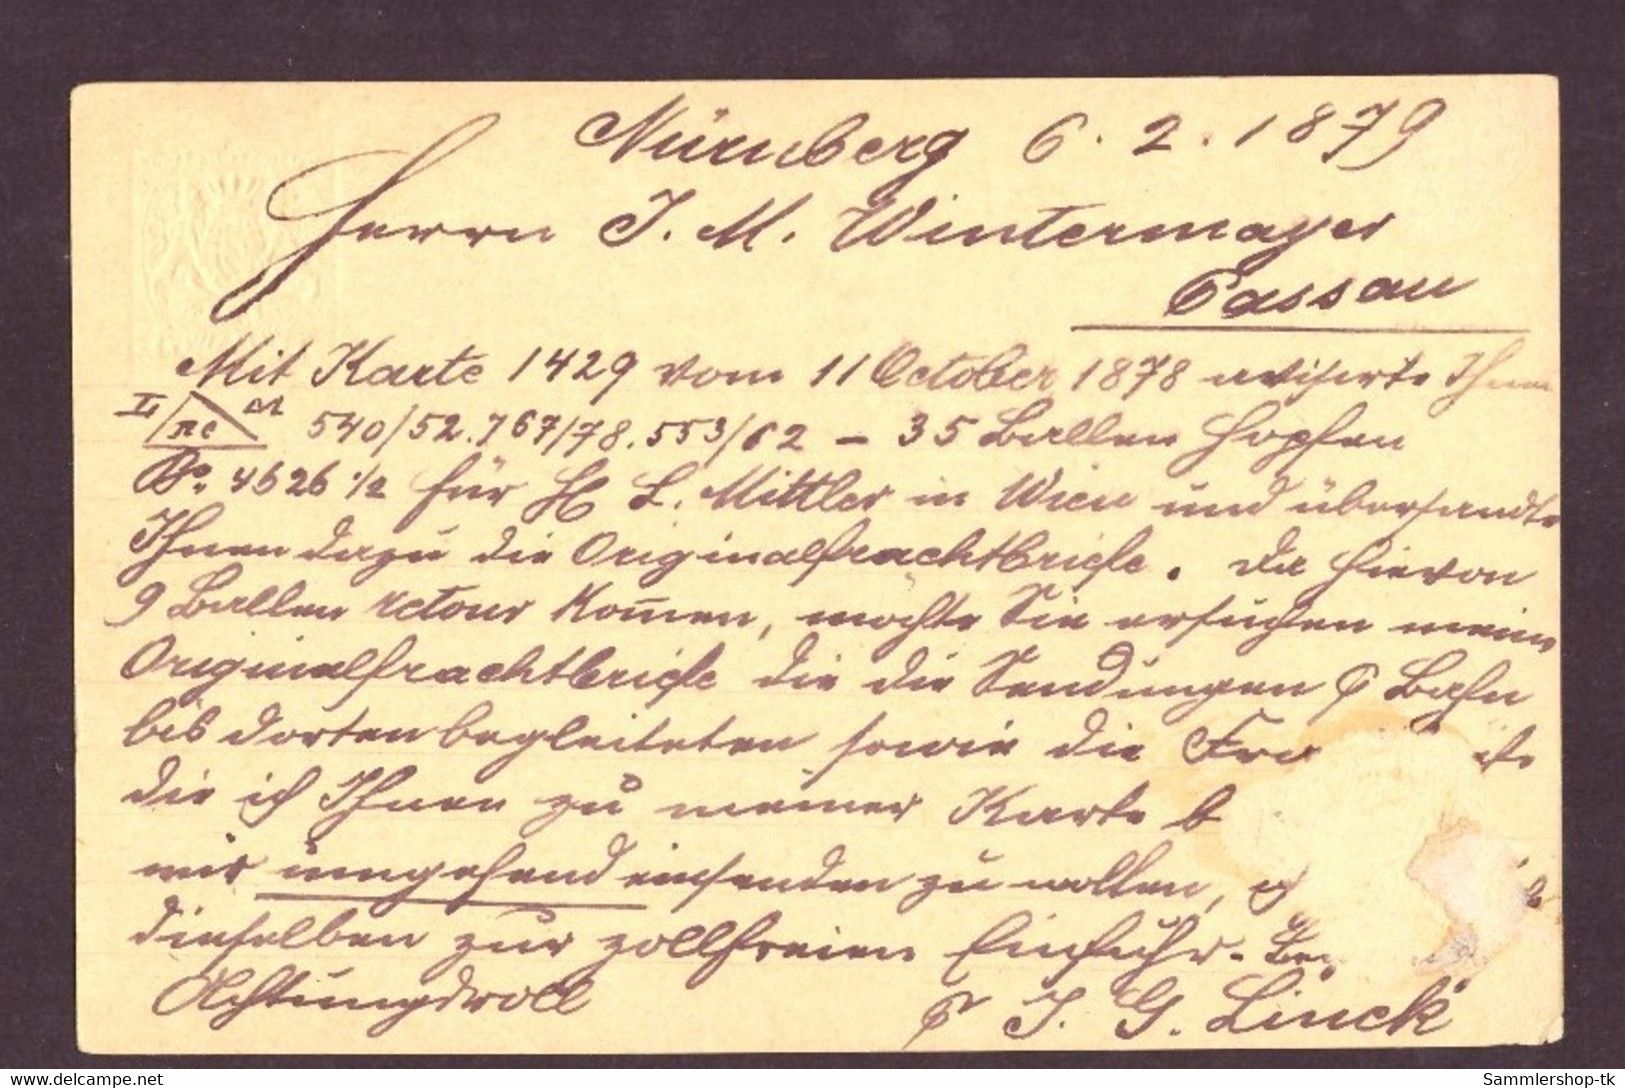 Nürnberg 6. 2. 1879
Herrn J. M. Wintermayer
Passau
Mit Karte 1429 vom 11 October 1878 avisirte Ihnen
540/52. 767/78. 553/62 – 35 Ballen Hopfen
Bo. 4626 1/2 für H L. Mittler in Wien und übersandte
Ihnen dazu die Originalfrachtbriefe. Da hievon
9 Ballen retour kom̄en, möchte Sie ersuchen meine
Originalfrachtbriefe die die Sendungen p Bahn
bis dorten begleiteten sowie die
die ich Ihnen zu meiner Karte b
mir umgehend einsenden zu wollen,
dieselben zur zollfreien Einfuhr
Achtungsvoll
p J. G. Linck
Sammlershop-tk